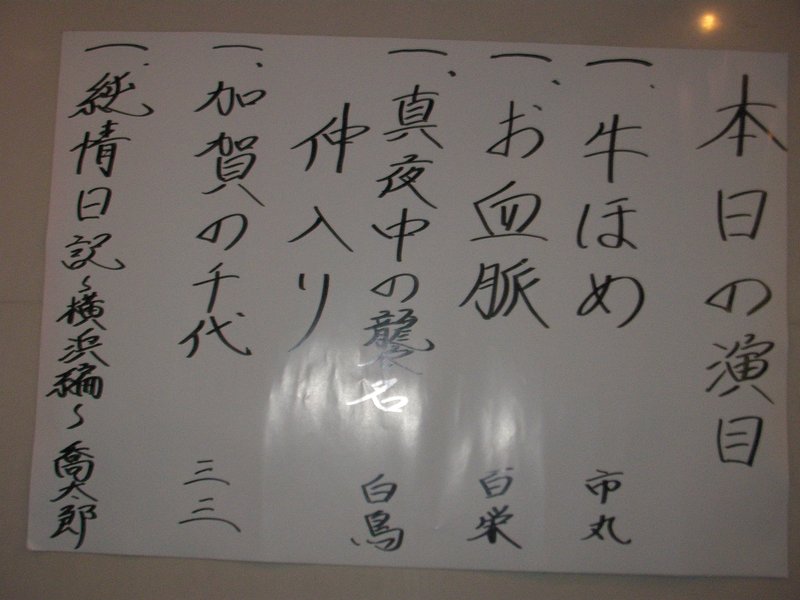 本日の演目
一、牛ほめ 市丸
一、お血脈 百栄
一、真夜中の襲名 白鳥
仲入り
一、加賀の千代 三三
一、純情日記～横浜編～ 喬太郎